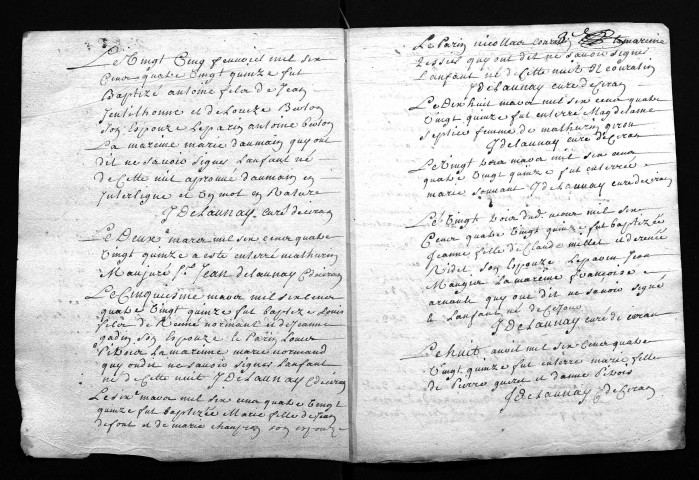 Le Vingt Cinq feuvrier mil six
Cens quatre Vingt quinze fut
Baptizé antoine fils de Jean
Jentilhomme et de Louize Berlon
son Espouze Le parin antoine berlon
La mareine marie daumain quy ont
dit ne savoir signer Lanfant né
de Cette nuit aprouué daumain en
Interligne et un mot en Rature
J Delaunay curé de ciran
Le Deux.e mars mil six cens quatre
Vingt quinze a esté enterré mathurin
Maugeré J Jean Delaunay C de ciran
Le Cinquiesme mars mil six cens
quatre Vingt quinze fut baptizé Louis
fils de Rene normant et de Jeanne
son Espouze le Parin Louis
La mareinne marie normand
quy ondit ne sauoir signer Lanfant
né de Cette nuit J Delaunay C de ciran
Le six.e mars mil six cens quatre Vingt
quinze fut baptizée Marie fille de Jean
defont et de marie son espouze
Le Parin nicollas courat la mareine
quy ont dit ne savoir signer
Lanfant né de Cette nuit
J Delaunay curé de Ciran
Le Dix huit mars mil six cens quatre
Vingt quinze fut enterré Magdelaine
femme de mathurin giron
J delaunay curé de Ciran
Le Vingt mars mil six cens
quatre Vingt quinze fut enterrée
marie J Delaunay curé de ciran
Le Vingt dud. mois mil six
Cens quatre Vingt quinze fut baptizée
Jeanne fille de Claude millet et de renée
Ridet, son Espouze Le parin Jean
Maugin La mareine françoise
arnault quy ont dit ne savoir signé
& Lanfant né de Ce Jour
J Delaunay curé de ciran
Le huit auril mil six Cens quatre
Vingt quinze fut enterré marie fille
de Pierre et danne
J Delaunay C de Ciran